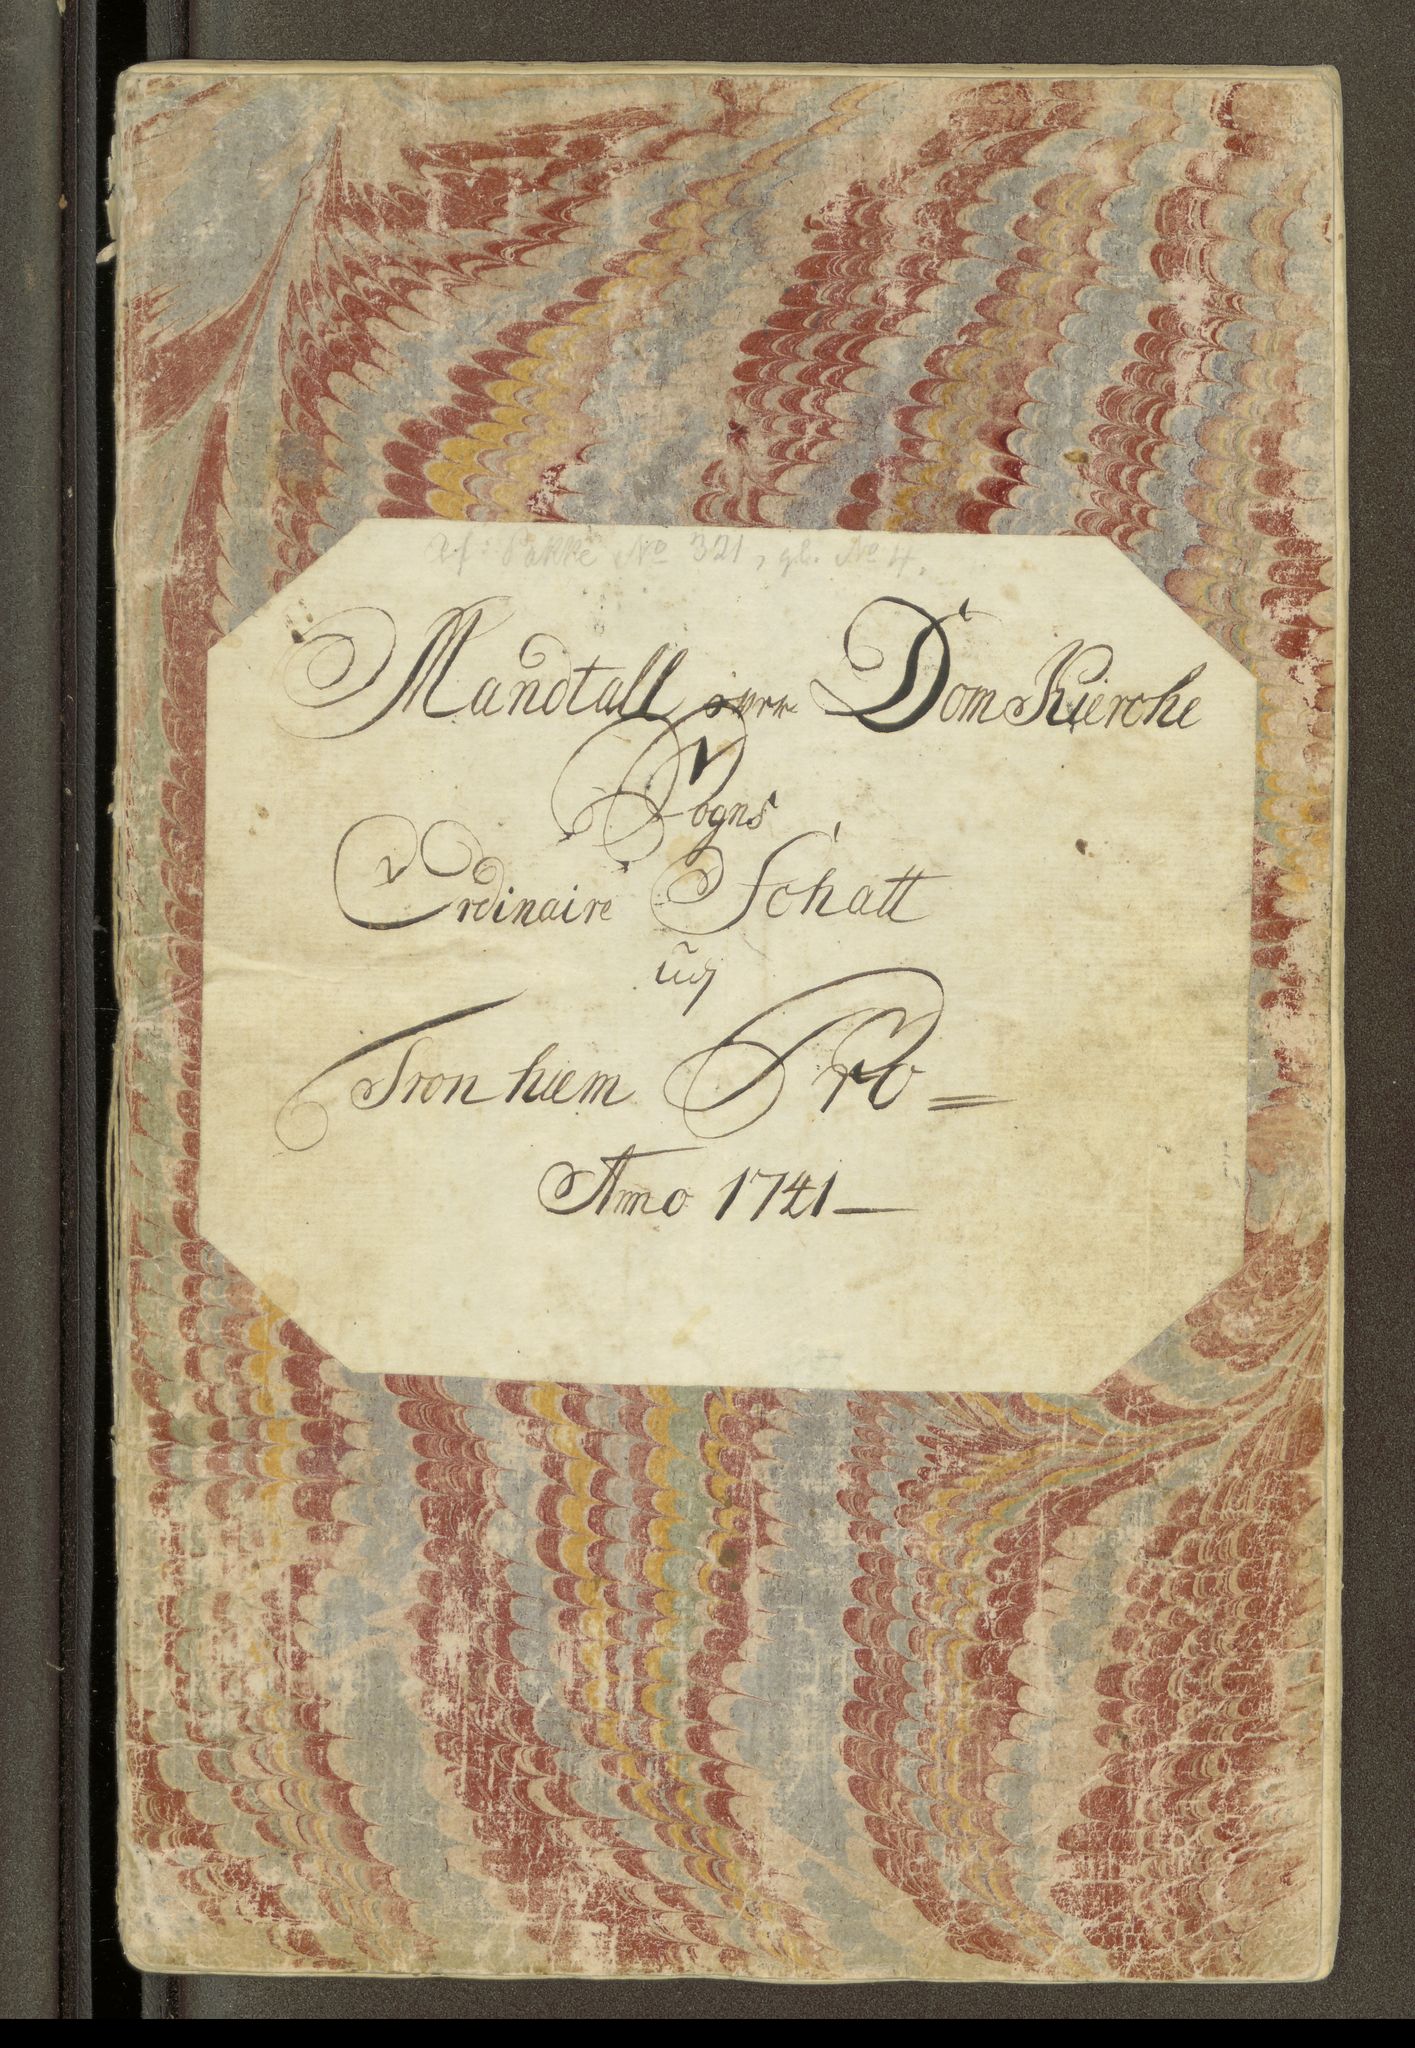 Af: Pakke No 321, gl. No 4.
Mandtall over Dom Kierche
Sogns
Ordinaire Schatt
udj
Tronhiem Pro
Anno 1741